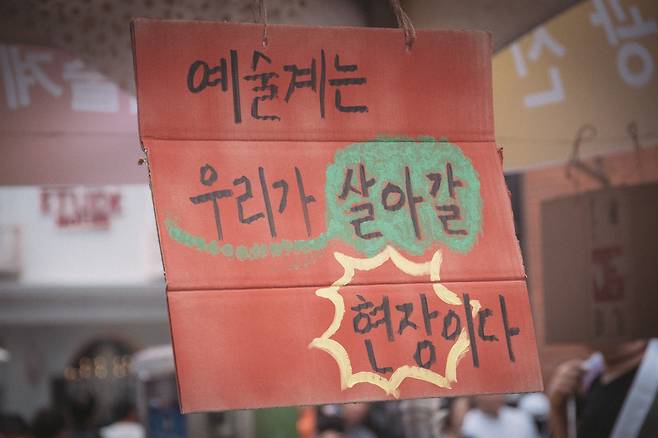 예술계는
우리가 살아갈
현장이다